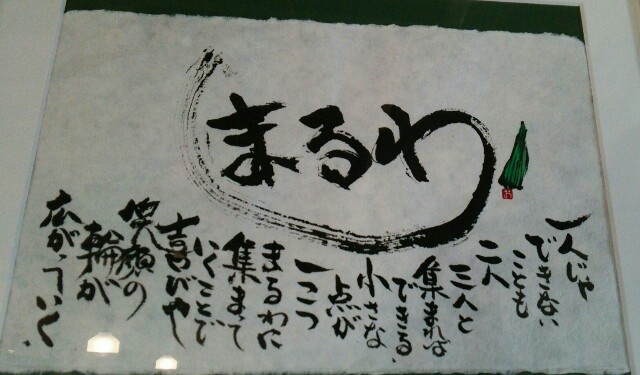 まるわ
一人じゃ
できない
ことも
二人
三人と
集まれば
できる
小さな
点が
一つ一つ
まるわに
集まって
いくことで
喜びや
笑顔の
輪が
広がっていく